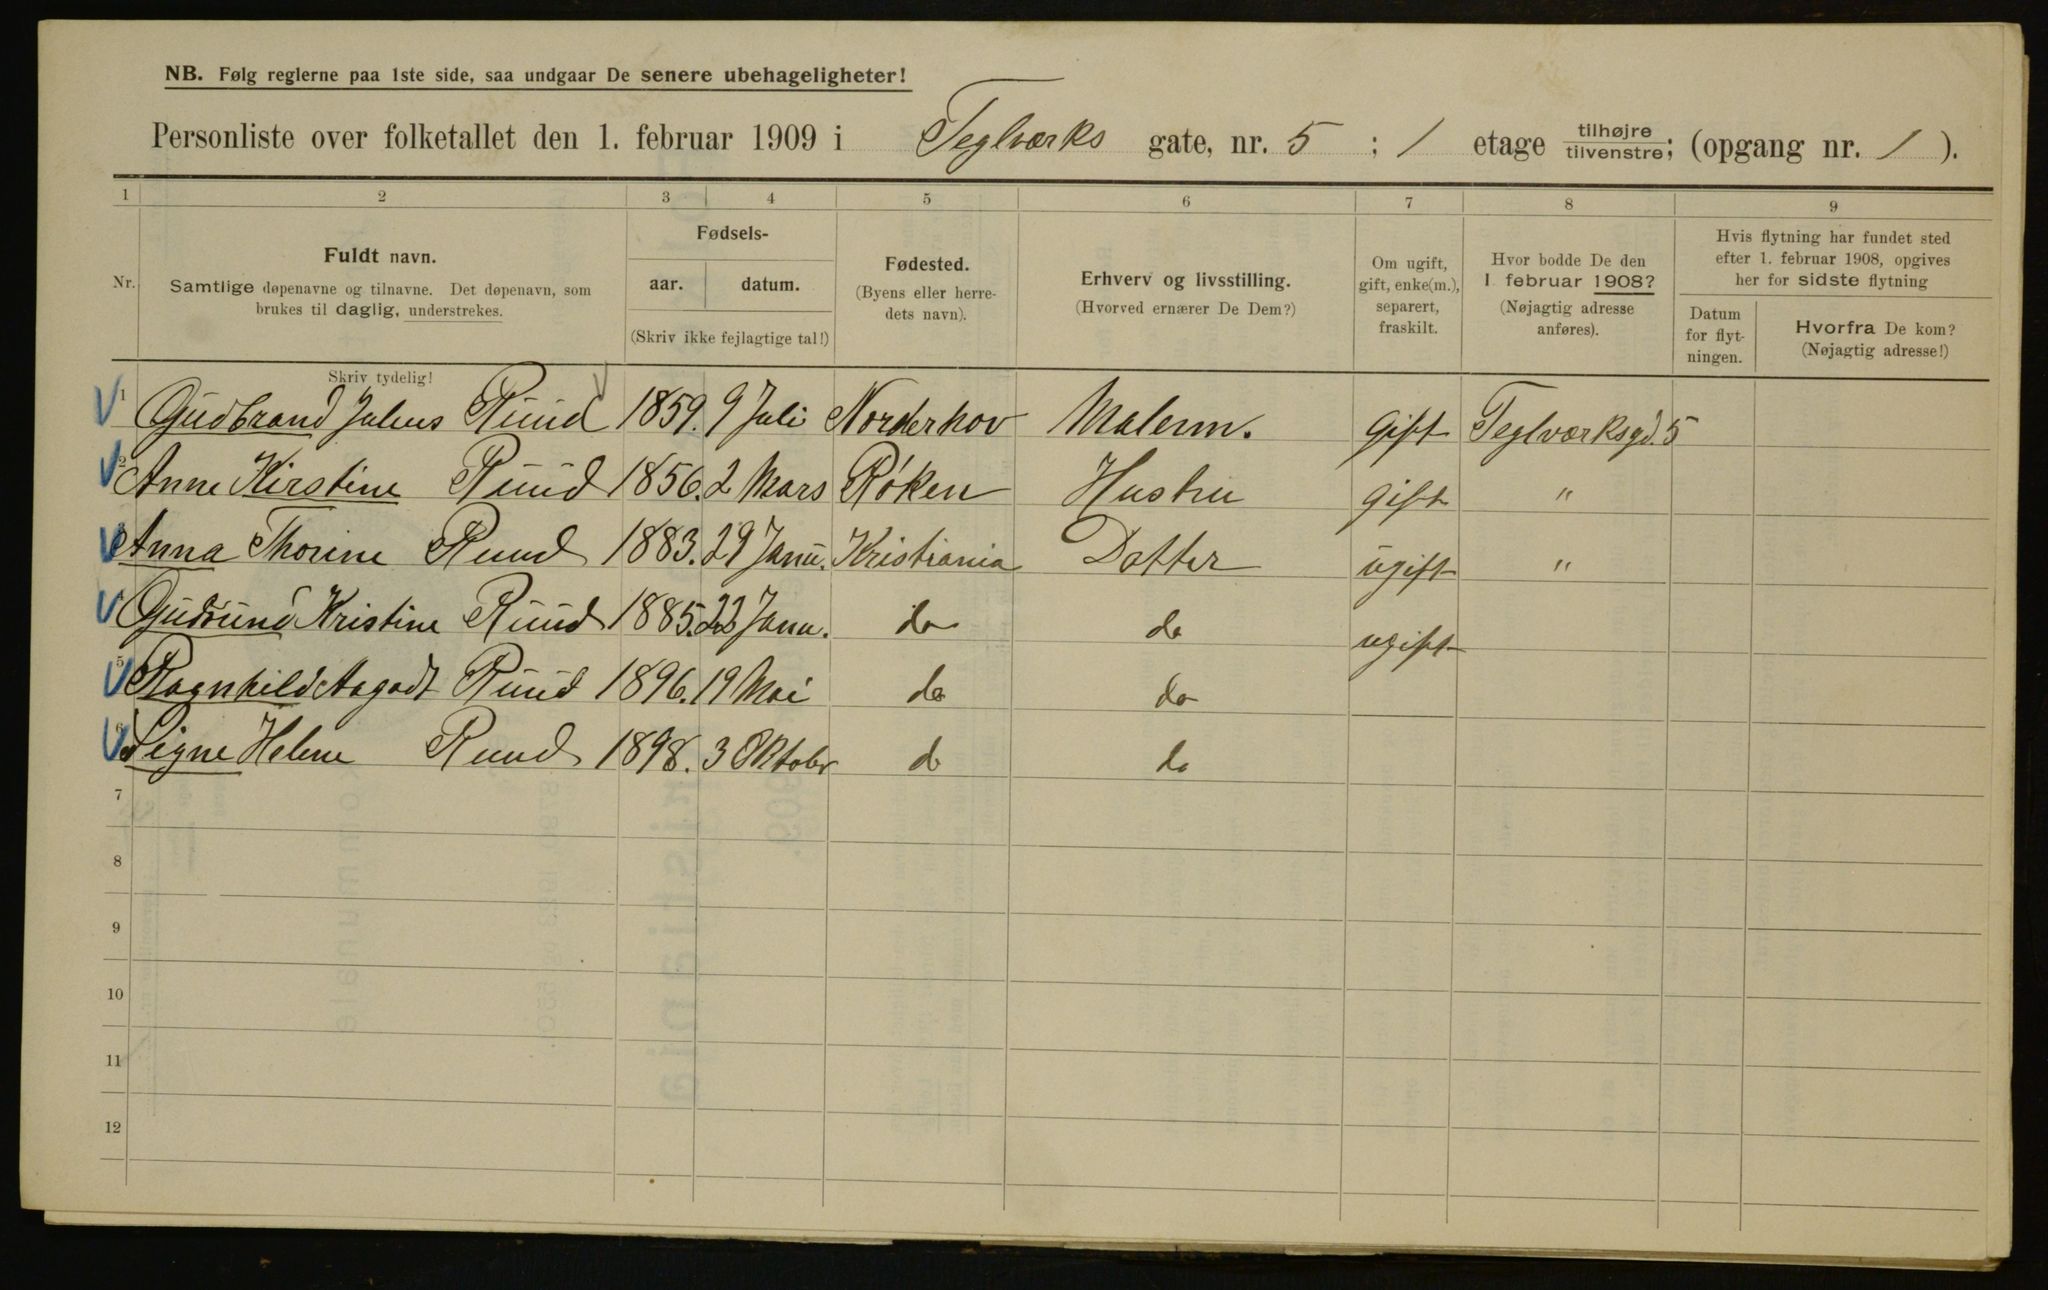 NB. Følg reglerne paa 1ste side, saa undgaar De senere ubehageligheter!
Personliste over folketallet den 1. februar 1909 i Teglværks gate, nr. 5 ; 1 etage tilhøjre tilvenstre; (opgang nr. 1 ).
1 2 3 4 5 6 7 8 9
Nr.
Fuldt navn.
Samtlige døpenavne og tilnavne. Det døpenavn, som
brukes til daglig, understrekes.
Skriv tydelig!
Fødsels-
aar. datum.
(Skriv ikke fejlagtige tal!)
Fødested.
(Byens eller herre-
dets navn).
Erhverv og livsstilling.
(Hvorved ernærer De Dem?)
Om ugift,
gift, enke(m.),
separert,
fraskilt.
Hvor bodde De den
1 februar 1908?
(Nøjagtig adresse
anføres).
Hvis flytning har fundet sted
efter 1. februar 1908, opgives
her for sidste flytning
Datum
for flyt-
ningen.
Hvorfra De kom?
(Nøjagtig adresse!)
1 Gudbrand Julius Ruud 1859. 9 Juli Norderhov Malerm. gift Teglværksgd. 5
2 Anne Kirstine Ruud 1856. 2 Mars Røken Hustru gift "
3 Anna Thorine Ruud 1883. 29 Janu. Kristiania Datter ugift "
Kristine Ruud 1885. 22 Janu. do do ugift
5 Ragnhild Aagodt Ruud 1896. 19 Mai do do
6 Signe Helene Ruud 1898. 3 Oktober d do
7
8
9
10
11
12